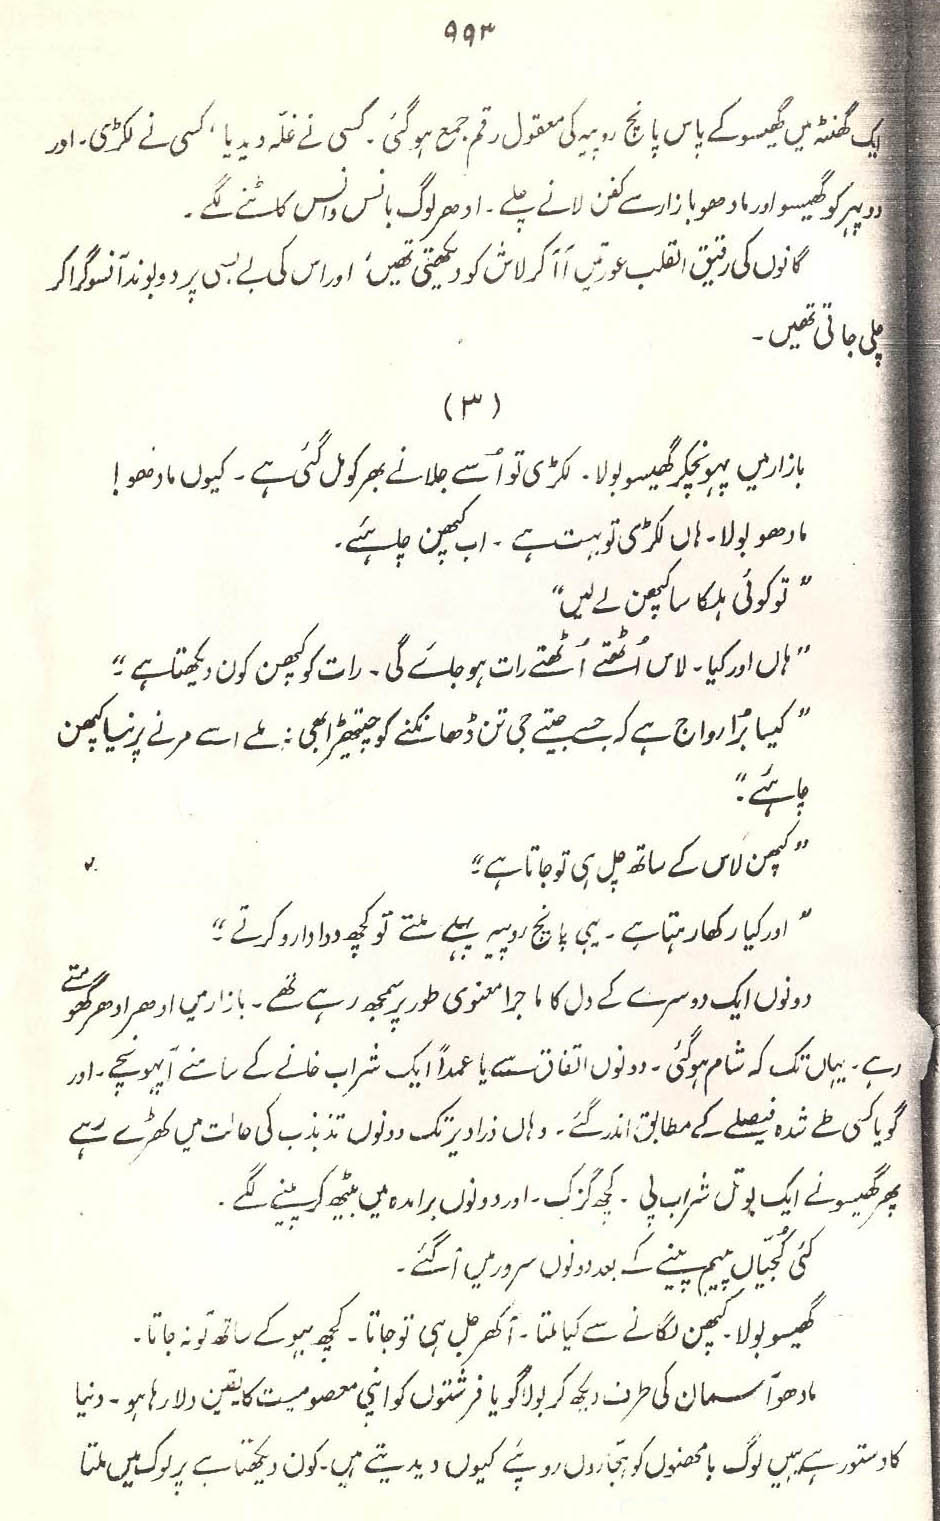 ۹۹۳
ایک گھنٹہ میں گھیسو کے پاس پانچ روپیہ کی معقول رقم جمع ہو گئی ۔ کسی نے غلّہ دیدیا ، کسی نے لکڑی ۔ اور
دوپہر کو گھیسو اور مادھو بازار سے کفن لانے چلے ۔ ادھر لوگ بانس وانس کاٹنے لگے ۔
گانوں کی رقیق القلب عورتیں آ آ کر لاش کو دیکھتی تھیں ، اور اس کی بے بسی پر دو بوند آنسو گرا کر
چلی جاتی تھیں ۔
(۳)
بازار میں پہونچکر گھیسو بولا ۔ لکڑی تو اُسے جلانے بھر کو مل گئی ہے ۔ کیوں مادھو !
مادھو بولا ۔ ہاں لکڑی تو بہت ہے ۔ اب کپھن چاہئے ۔
"تو کوئی ہلکا سا کپھن لے لیں"
"ہاں اور کیا ۔ لاس اُٹھتے اُٹھتے رات ہو جائے گی ۔ رات کو کپھن کون دیکھتا ہے ۔"
"کیسا بُرا رواج ہے کہ جسے جیتے جی تن ڈھانکنے کو چیتھڑا بھی نہ ملے اسے مرنے پر نیا کپھن
چاہئے ۔"
"کپھن لاس کے ساتھ جل ہی تو جاتا ہے ۔"
"اور کیا رکھا رہتا ہے ۔ یہی پانچ روپیہ پہلے ملتے تو کچھ دوا دارو کرتے ۔"
دونوں ایک دوسرے کے دل کا ماجرا معنوی طور پر سمجھ رہے تھے ۔ بازار میں ادھر ادھر گھومتے
رہے ۔ یہاں تک کہ شام ہو گئی ۔ دونوں اتفاق سے یا عمداً ایک شراب خانے کے سامنے آ پہونچے ۔ اور
گویا کسی طے شدہ فیصلے کے مطابق اندر گئے ۔ وہاں ذرا دیر تک دونوں تذبذب کی حالت میں کھڑے رہے
پھر گھیسو نے ایک بوتل شراب لی ۔ کچھ گزک ۔ اور دونوں برامدہ میں بیٹھ کر پینے لگے ۔
کئی کُجیّاں پیہم پینے کے بعد دونوں سرور میں آ گئے ۔
گھیسو بولا ۔ کپھن لگانے سے کیا ملتا ۔ آکھر جل ہی تو جاتا ۔ کچھ بہو کے ساتھ تو نہ جاتا ۔
مادھو آسمان کی طرف دیکھ کر بولا گویا فرشتوں کو اپنی معصومیت کا یقین دلا رہا ہو ۔ دنیا
کا دستور ہے یہی لوگ بامھنوں کو ہجّاروں روپئے کیوں دیدیتے ہیں ۔ کون دیکھتا ہے پرلوک میں ملتا